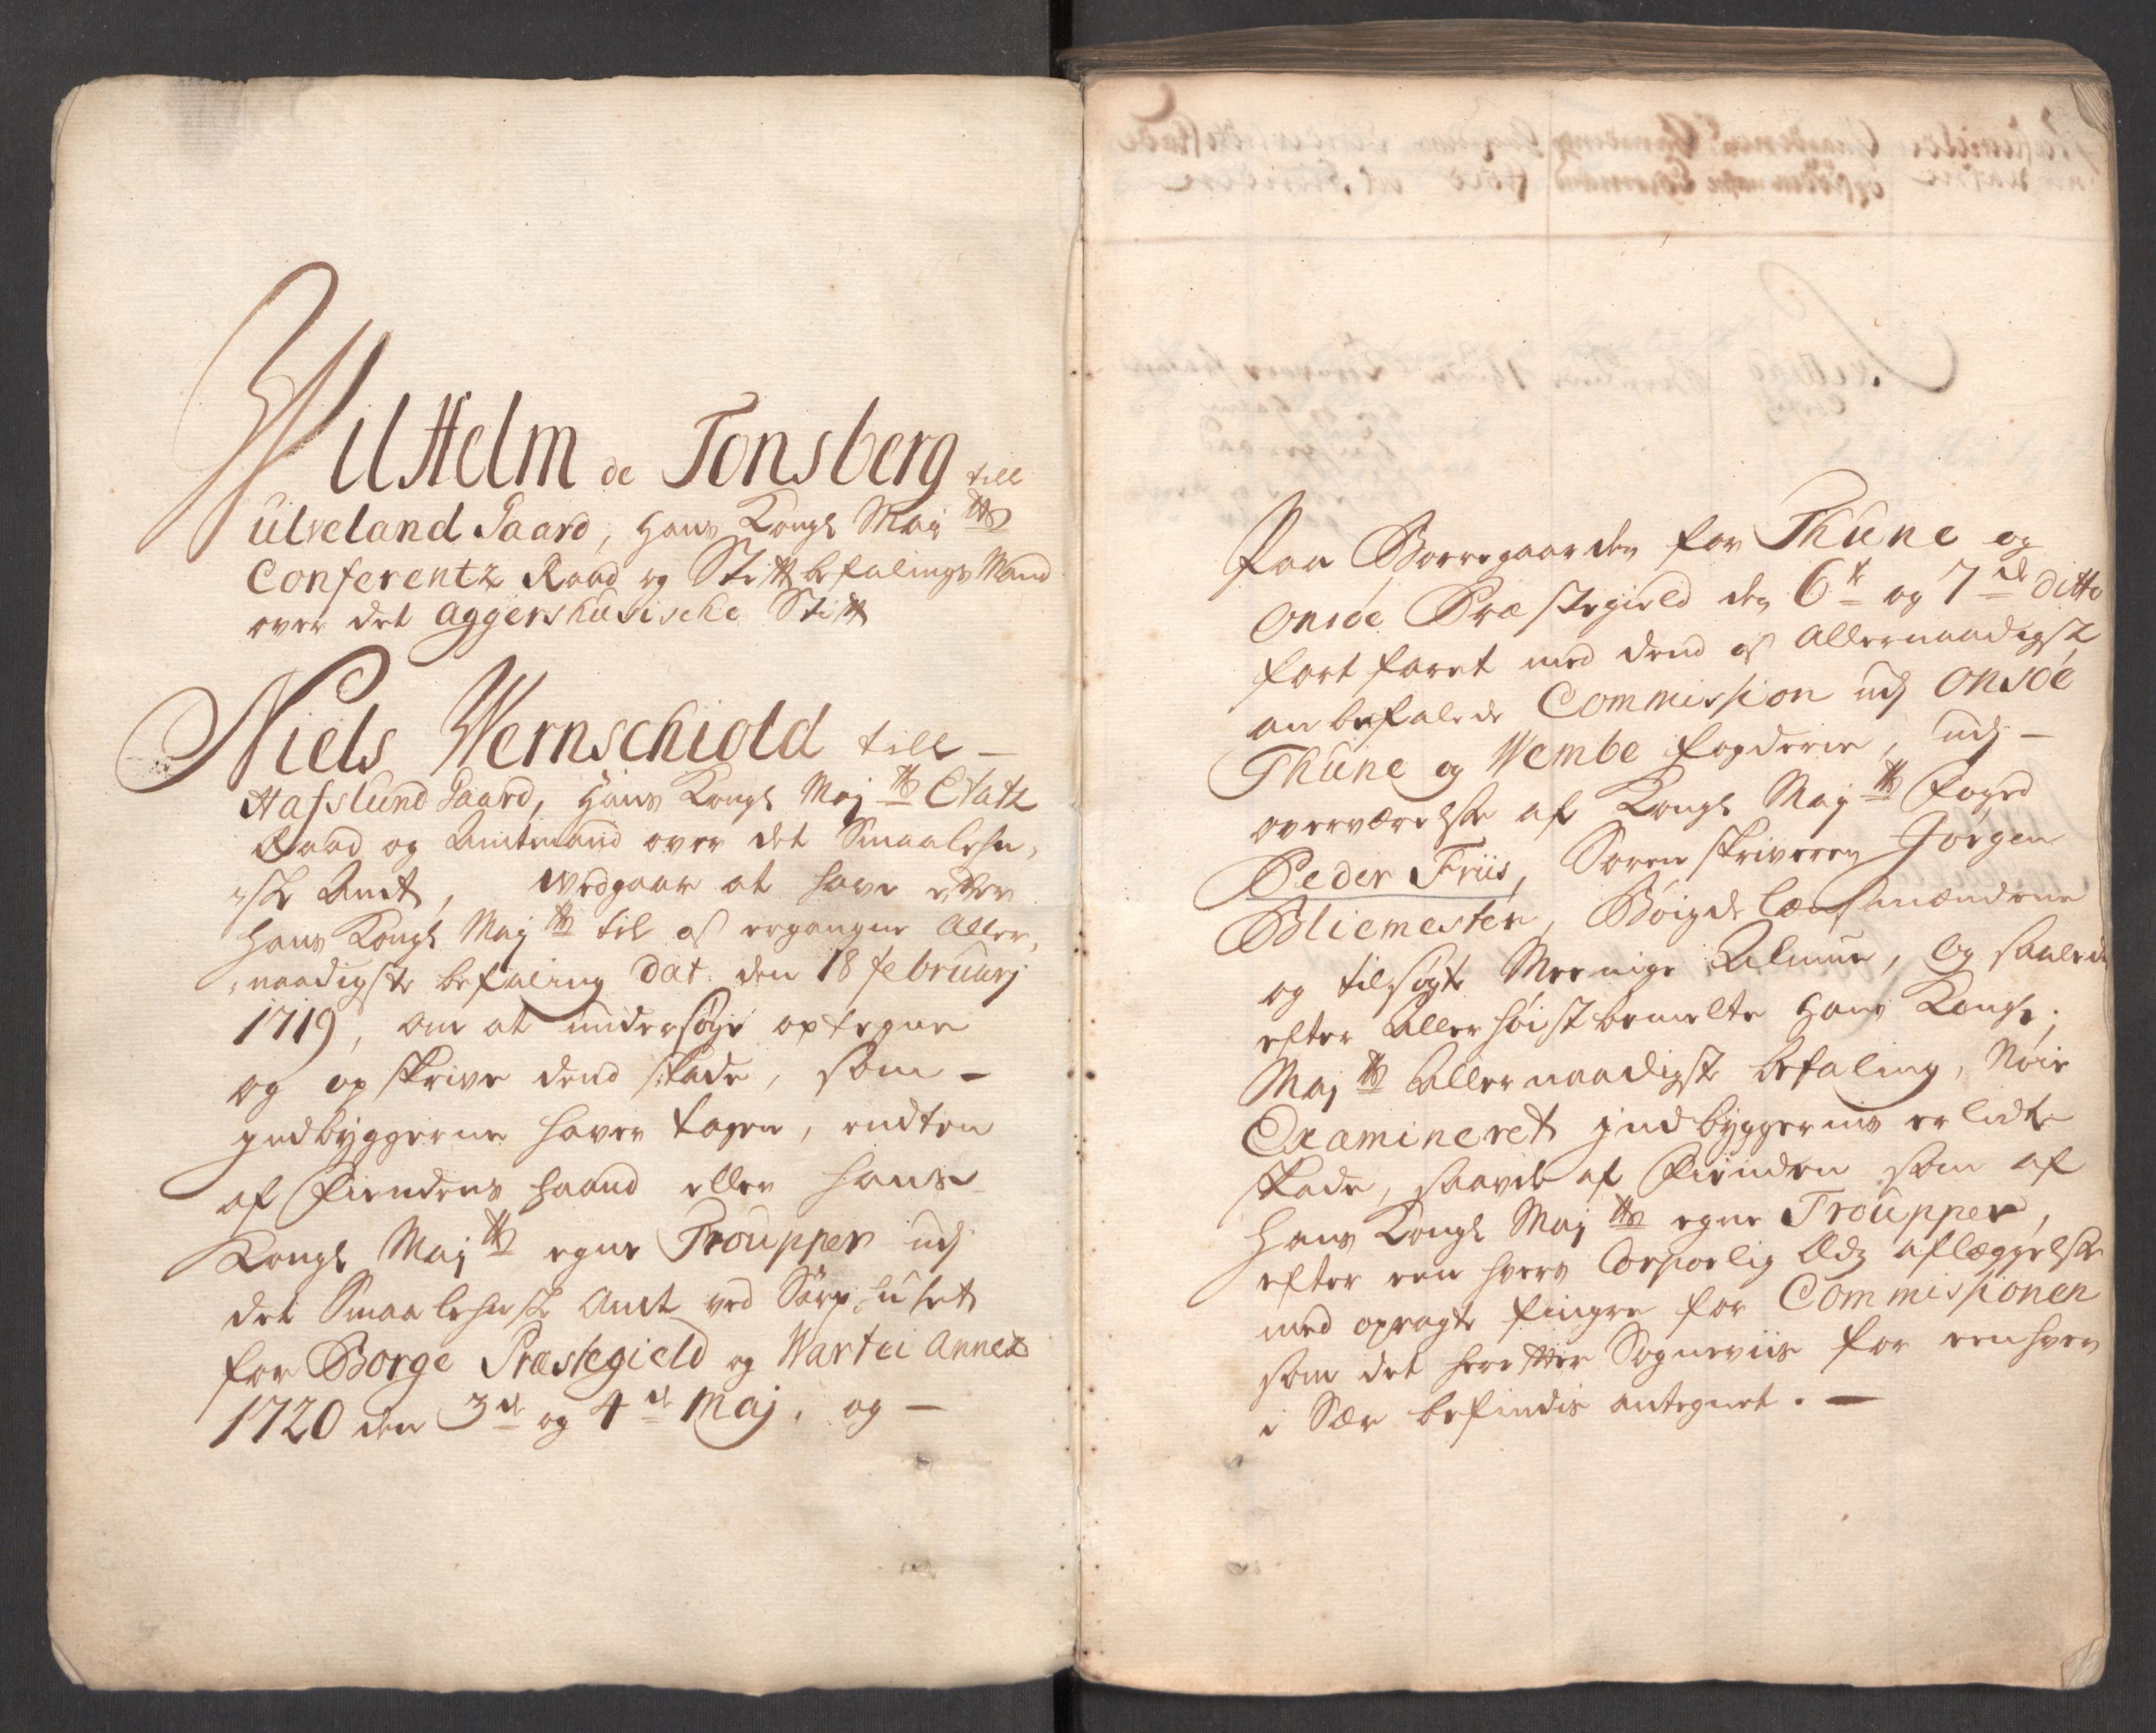 Wilhelm de Tonsberg till
Ulveland Gaard, Hans Kongl Maij tts
Conferentz Raad og Stiftbefalings Mand
over det Aggershusische Stift
Niels Wernschiold till -
Hafslund Gaard, Hans Kongl Maj tts Etatz
Raad og Amtmand over det Smaalehn,
,,ske Amt, Wedgaar at have efter
Hans Kongl Maj tts til os ergangne Aller,
,,naadigste befaling Dat. den 18 februarj
1719, om at undersøge optegne
og opskrive dend skade, som -
jndbyggerne haver tagen, endten
af Fiendens haand eller hans
Kongl Maj tts egne Troupper udj
det Smaalehnske Amt ved Sarphuset
for Borge Præstegield og Warteü Annex
1720 den 3de og 4de Maj, og -
Paa Borregaarden for Thune og
Onsøe Præstegield den 6te og 7de ditto
fortfaret med dend os Allernaadigst
anbefalede Commission udj Onsøe
Thune og Wembe fogderie, udj -
overværelse af Kongl Maj tts Foged
Peder Friis, Sorenskriveren Jørgen
Bliemester, Bøigde lænsmændene
og tilsøgte Meenige Almue, og saalede
efter Allerhøistbemelte Hans Kongl.
Maj tts Allernaadigste befaling, Nøie
Examineret jndbyggernis erlidte
skade, saavel af Fienden som af
Hans Kongl Maj tts egne Troupper,
efter een hvers Corporlig Eds aflæggelse
med opragte fingre for Commissionen
som det herefter Sogneviis for eenhver
i Sær befindis antegnet. -